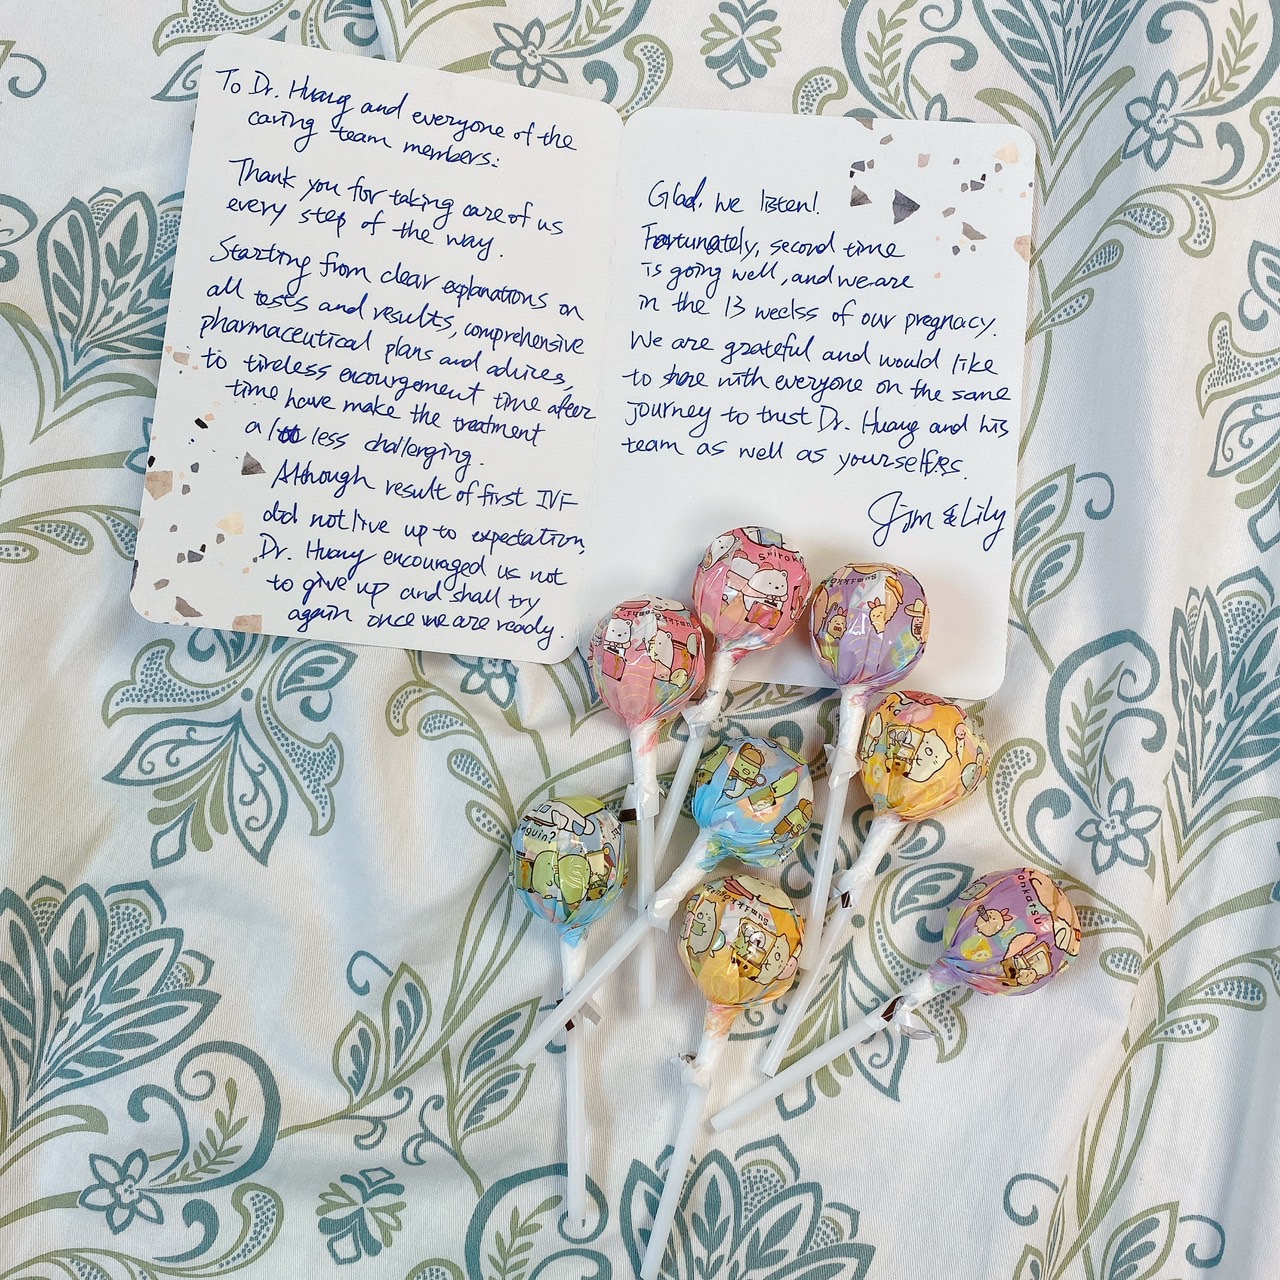 To Dr. Huang and everyone of the
caring team members:
Thank you for taking care of us
every step of the way.
Starting from clear explanations on
all tests and results, comprehensive
pharmaceutical plans and advices,
to tireless encourgement time afeer
time have make the treatment
a lot less challenging.
Although result of first IVF
did not live up to expectation,
Dr. Huang encouraged us not
to give up and shall try
again once we are ready.
Glad, we listen!
Fortunately, second time
is going well, and we are
in the 13 weekss of our pregnacy.
We are grateful and would like
to share with everyone on the same
journey to trust Dr. Huang and his
team as well as yourselfes.
Jim & Lily
penguin?
Tonkatsu